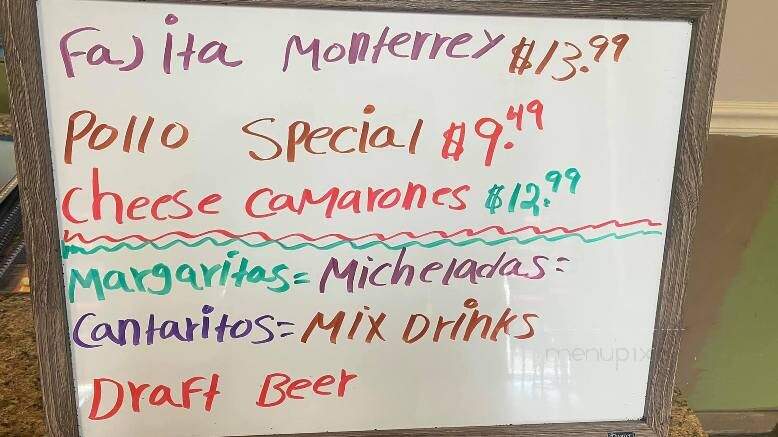 Fajita Monterrey $13.99
Pollo Special $9.49
Cheese Camarones $12.99
Margaritas= Micheladas=
Cantaritos= Mix Drinks
Draft Beer
menupix